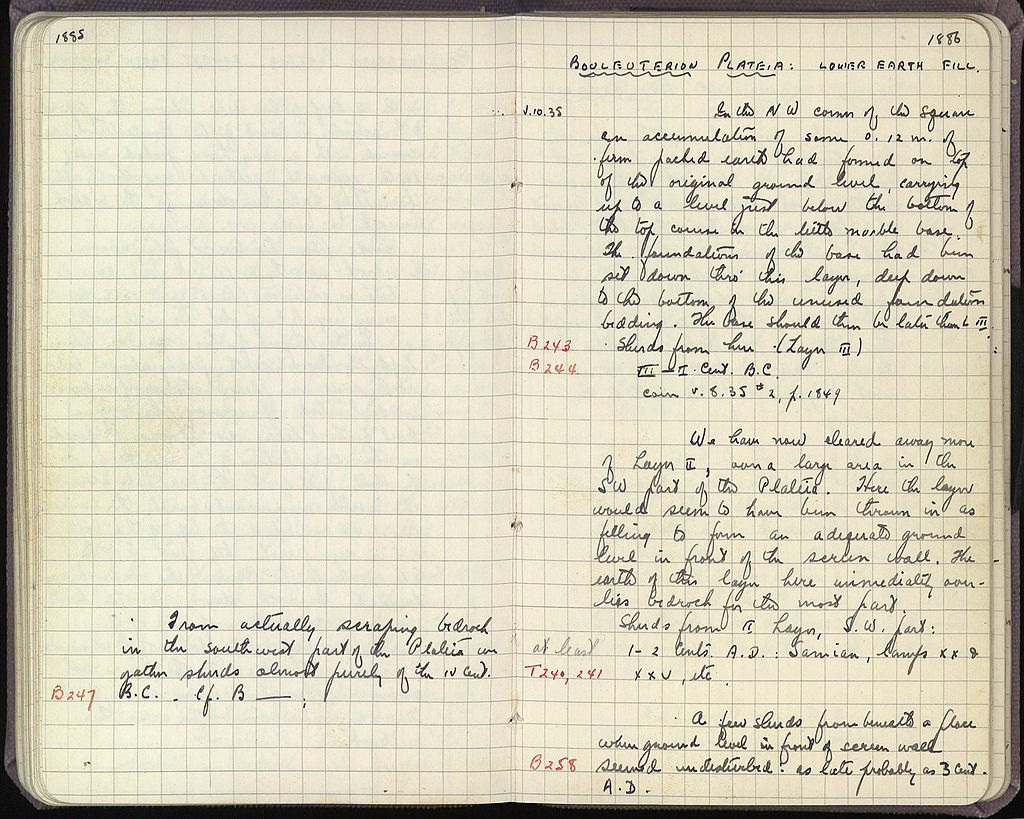 1885
From actually scraping bedrock
in the southwest part of the Plateia we
gather sherds almost purely of the IV cent.
B247 B.C. Cf. B —— .
1886
BOULEUTERION PLATEIA: LOWER EARTH FILL.
V.10.35 In the NW corner of the square
an accumulation of some 0.12 m. of
firm packed earth had formed on top
of the original ground level, carrying
up to a level just below the bottom of
the top course in the little marble base.
The foundations of the base had been
set down thro' this layer, deep down
to the bottom of the unused foundation
bedding. The base should then be later than L III.
B243 Sherds from here (Layer III)
B244 III – I Cent. B.C.
coin V.8.35 #2, p. 1849
We have now cleared away more
of Layer II, over a large area in the
SW part of the Plateia. Here the layer
would seem to have been thrown in as
filling to form an adequate ground
level in front of the screen wall. The
earth of this layer here immediately over-
lies bedrock for the most part.
Sherds from II Layer, S.W. part:
at least 1-2 Cents. A.D.: Samian, lamps XX &
T240, 241 XXV, etc.
A few sherds from beneath a place
where ground level in front of screen wall
B258 seemed undisturbed: as late probably as 3 cent.
A.D.